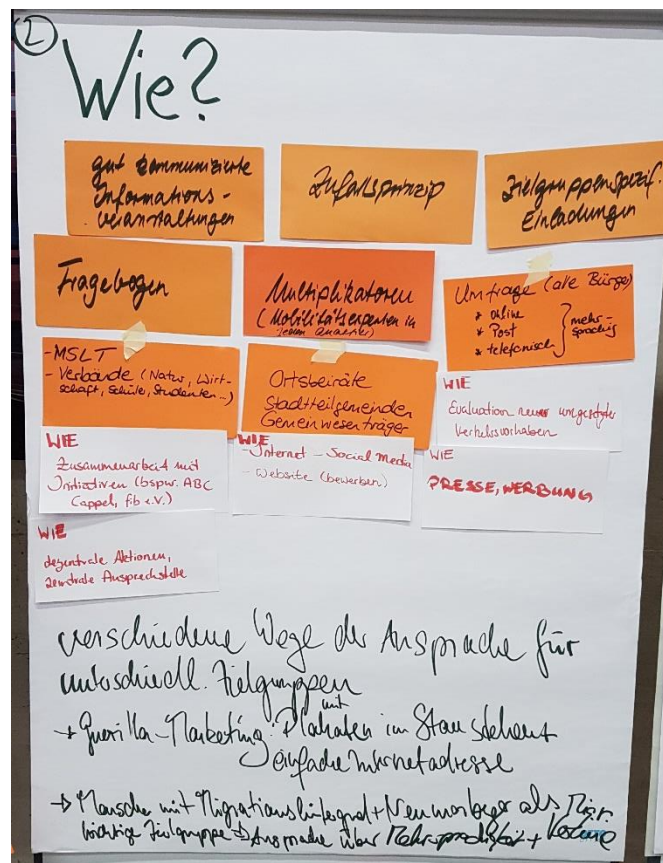 2
Wie?
gut kommunizierte
Informations-
veranstaltungen
Zufallsprinzip
Zielgruppenspezif.
Einladungen
Fragebogen
Multiplikatoren
(Mobilitätsexperten in
jedem Quartier)
Umfrage (alle Bürger)
* Online
* Post
* telefonisch
mehr-
sprachig
- MSLT
- Verbände (Natur, Wirt-
schaft, Schüler, Studenten...)
Ortsbeiräte
Stadtteilgemeinden
Gemeinwesenträger
WIE
Evaluation neuer umgesetzter
Verkehrsvorhaben
WIE
Zusammenarbeit mit
Initiativen (bspw. ABC
Cappel, fib e.V.)
WIE
- Internet - Social Media
- Website (bewerben)
WIE
PRESSE, WERBUNG
WIE
dezentrale Aktionen,
zentrale Ansprechstelle
verschiedene Wege der Ansprache für
unterschiedl. Zielgruppen
→ Guerilla-Marketing: mit Plakaten im Stau stehend
einfache Internetadresse
→ Mensche mit Migrationshintergrund + Neumarburger als
wichtige Zielgruppe → Ansprache über Mehrsprachigkeit + Vereine